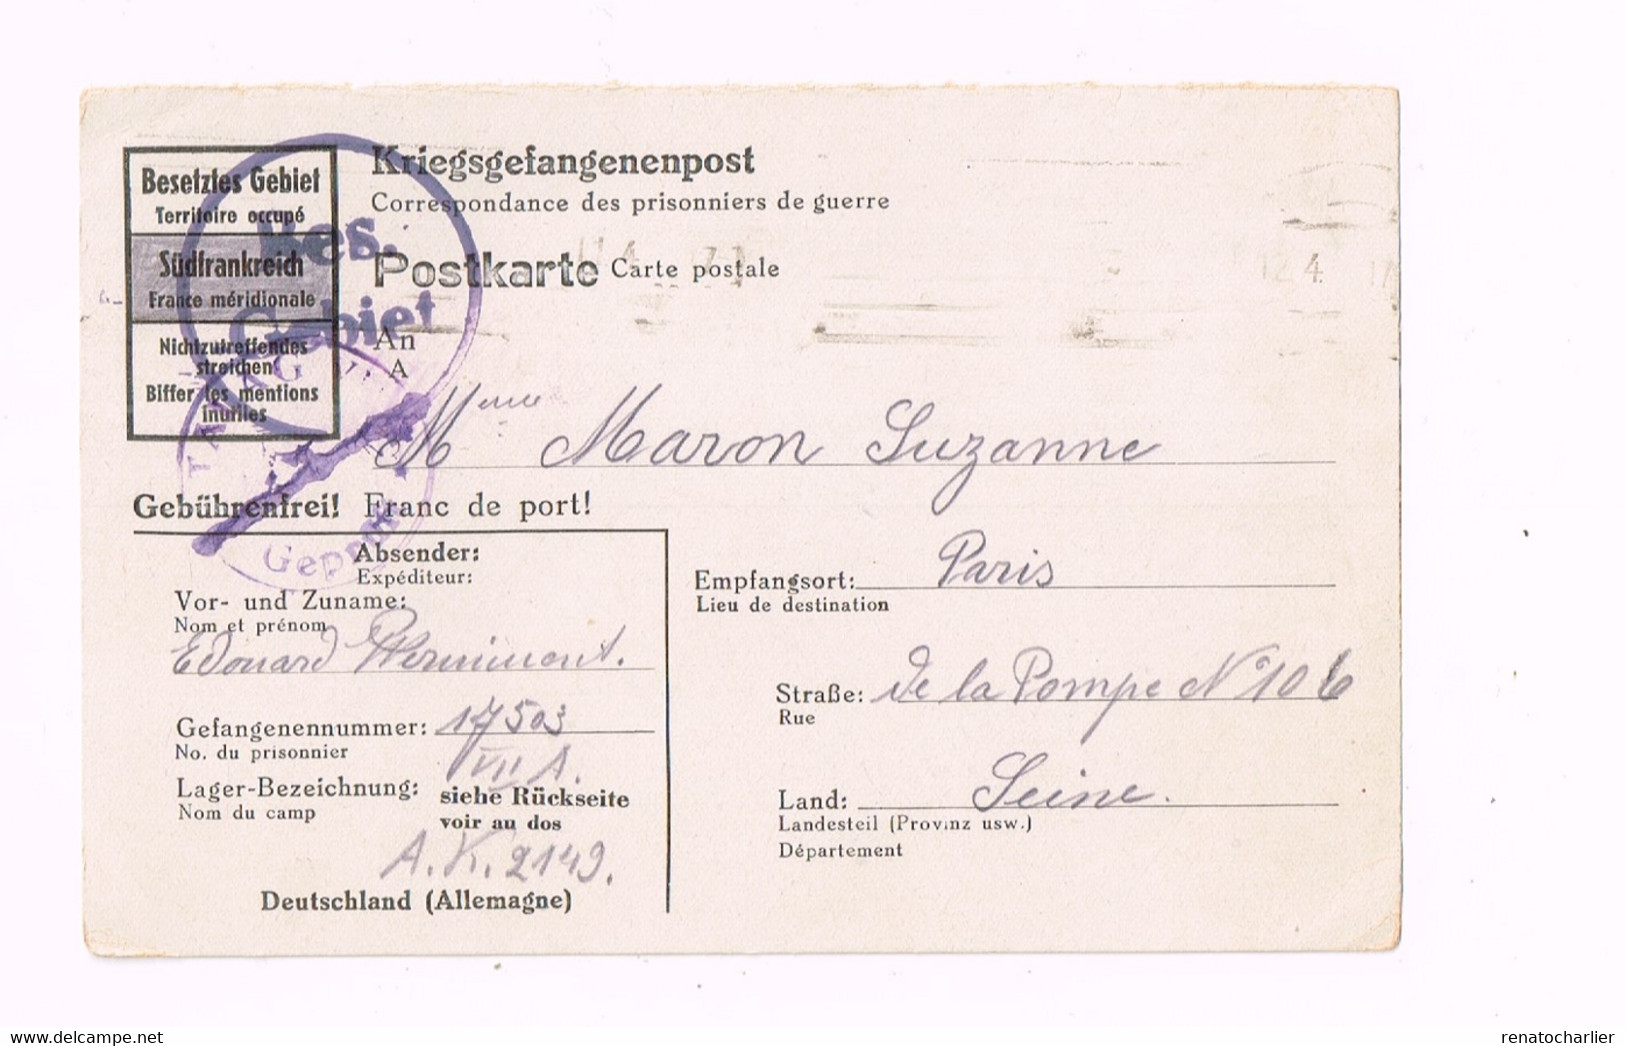 Besetztes Gebiet
Territoire occupé
Südfrankreich
France méridionale
Nichtzutreffendes
streichen
Biffer les mentions
inutiles
Bes.
Gebiet
Kriegsgefangenenpost
Correspondance des prisonniers de guerre
Postkarte Carte postale
An
A
Mme Maron Suzanne
Gebührenfrei! Franc de port!
Geprüft
Absender:
Expéditeur:
Vor- und Zuname:
Nom et prénom
Edouard
Gefangenennummer: 17503
No. du prisonnier
VII A.
Lager-Bezeichnung: siehe Rückseite
Nom du camp voir au dos
A.K. 2149.
Deutschland (Allemagne)
Empfangsort: Paris
Lieu de destination
Straße: de la Pompe N° 106
Rue
Land: Seine.
Landesteil (Provinz usw.)
Département
renatocharlier